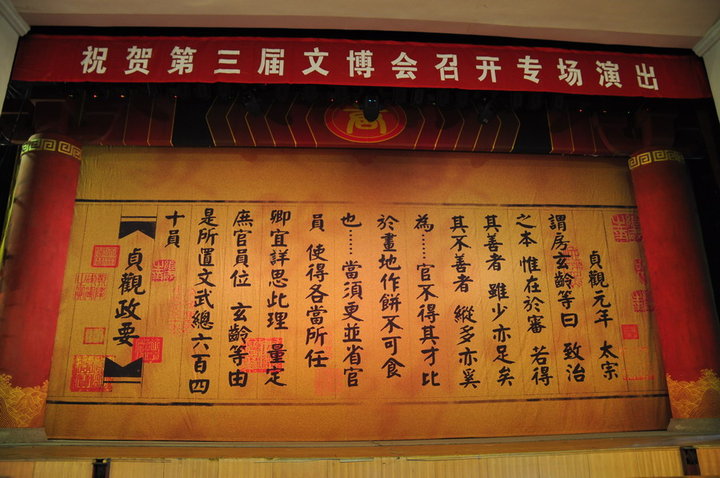 祝贺第三届文博会召开专场演出
貞觀元年 太宗
謂房玄齡等曰 致治
之本 惟在於審 若得
其善者 雖少亦足矣
其不善者 縱多亦奚
為……官不得其才比
於畫地作餅不可食
也……當須更並省官
員 使得各當所任
卿宜詳思此理 量定
庶官員位 玄齡等由
是所置文武總六百四
十員
貞觀政要